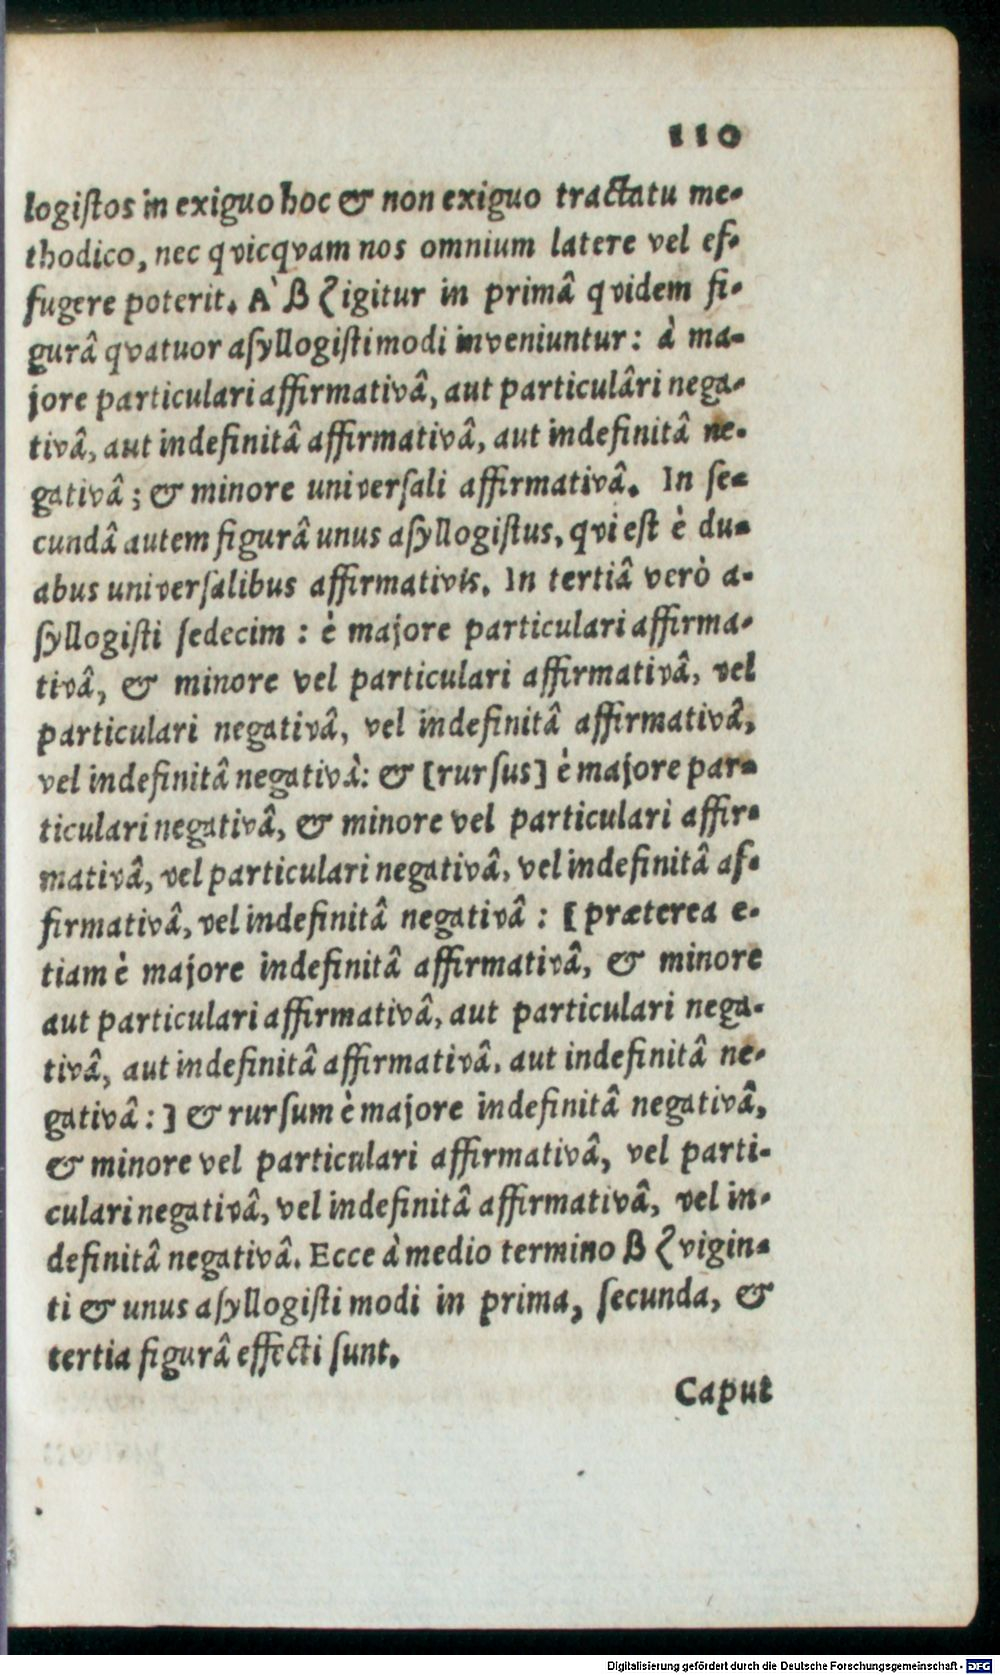 110
logiſtos in exiguo hoc & non exiguo tractatu me-
thodico, nec qvicqvam nos omnium latere vel ef-
fugere poterit. A` B ζ igitur in primâ qvidem fi-
gurâ qvatuor aſyllogiſti modi inveniuntur: à ma-
jore particulari affirmativâ, aut particulâri nega-
tivâ, aut indefinitâ affirmativâ, aut indefinitâ ne-
gativâ; & minore univerſali affirmativâ. In ſe-
cundâ autem figurâ unus aſyllogiſtus, qvi eſt è du-
abus univerſalibus affirmativis. In tertiâ verò a-
ſyllogiſti ſedecim: è majore particulari affirma-
tivâ, & minore vel particulari affirmativâ, vel
particulari negativâ, vel indefinitâ affirmativâ,
vel indefinitâ negativà: & [rurſus] è majore par-
ticulari negativâ, & minore vel particulari affir-
mativâ, vel particulari negativâ, vel indefinitâ af-
firmativâ, vel indefinitâ negativâ: [præterea e-
tiam è majore indefinitâ affirmativâ, & minore
aut particulari affirmativâ, aut particulari nega-
tivâ, aut indefinitâ affirmativâ, aut indefinitâ ne-
gativâ:] & rurſum è majore indefinitâ negativâ,
& minore vel particulari affirmativâ, vel parti-
culari negativâ, vel indefinitâ affirmativâ, vel in-
definitâ negativâ. Ecce à medio termino B ζ vigin-
ti & unus aſyllogiſti modi in prima, ſecunda, &
tertia figurâ effecti ſunt.
Caput
Digitalisierung gefördert durch die Deutsche Forschungsgemeinschaft - DFG